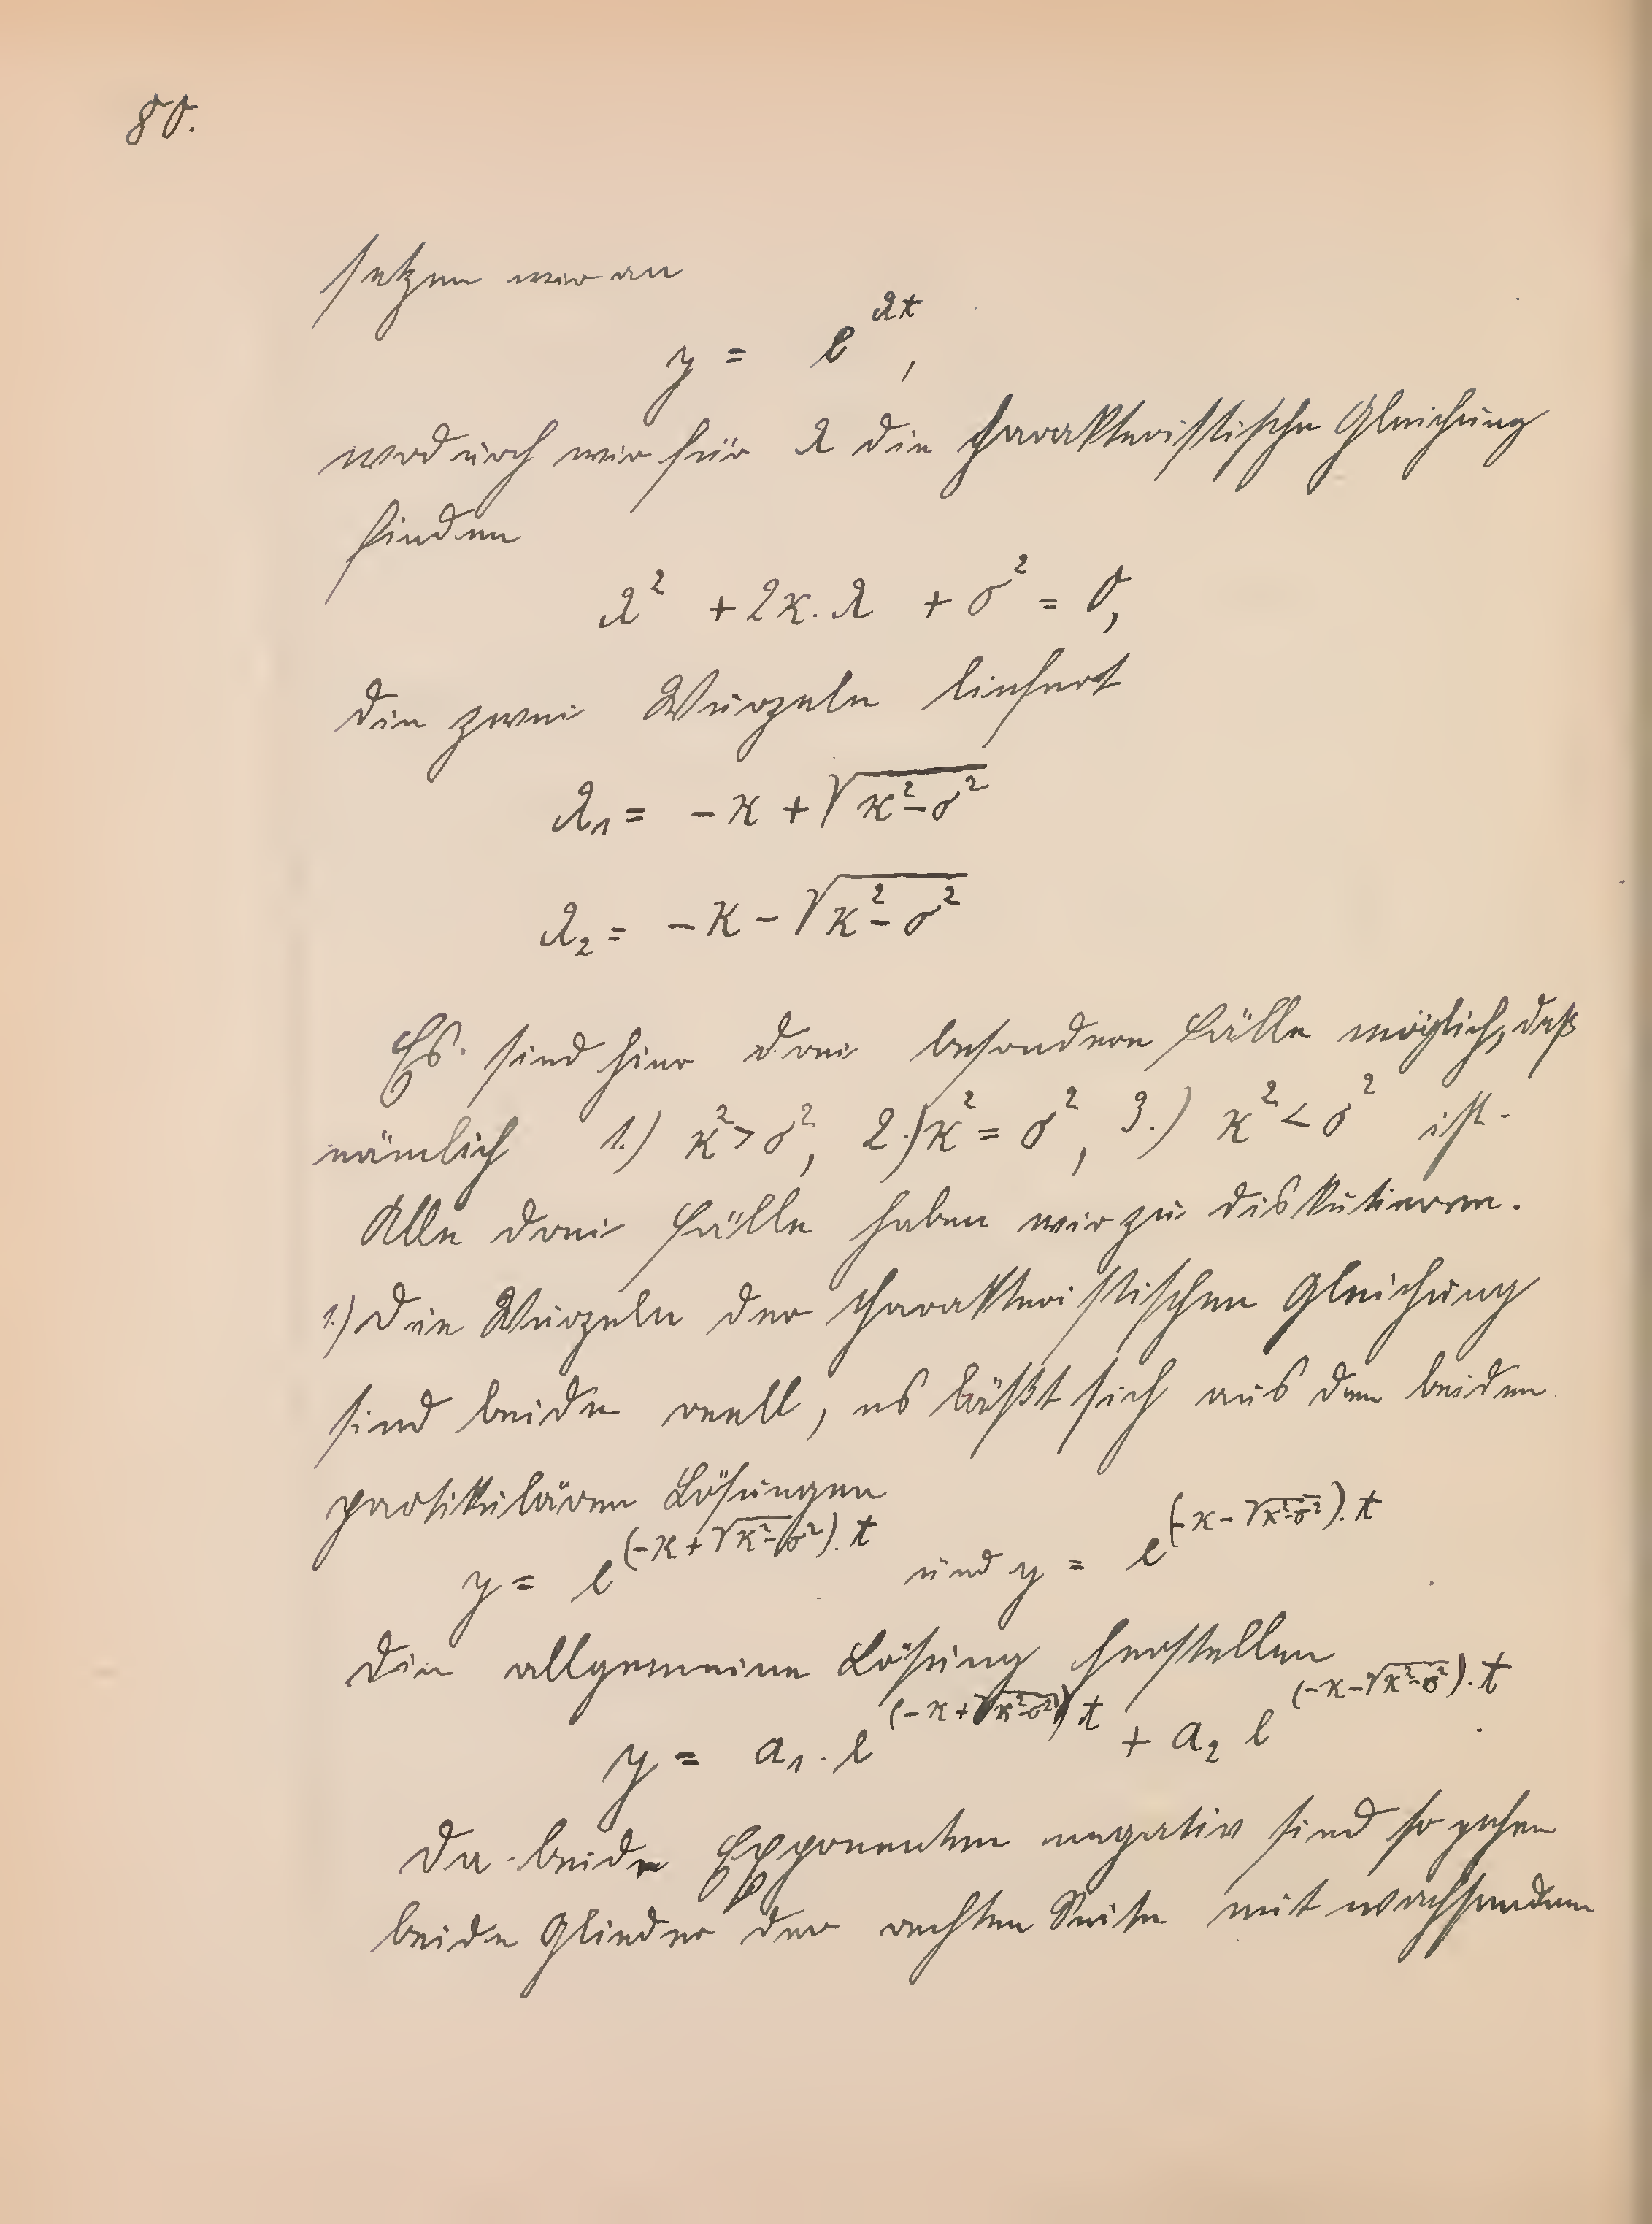 80.
setzen wir an
y = e^{λt},
wodurch wir für λ die charakteristische Gleichung
finden
λ² + 2κ.λ + σ² = 0,
die zwei Wurzeln liefert
λ₁ = -κ + √(κ²-σ²)
λ₂ = -κ - √(κ²-σ²)
Es sind hier drei besondere Fälle möglich, daß
nämlich 1.) κ² > σ², 2.) κ² = σ², 3.) κ² < σ² ist.
Alle drei Fälle haben wir zu diskutieren.
1.) Die Wurzeln der charakteristischen Gleichung
sind beide reell, es läßt sich aus den beiden
partikulären Lösungen
y = e^{(-κ+√(κ²-σ²)).t} und y = e^{(-κ-√(κ²-σ²)).t}
die allgemeine Lösung herstellen
y = a₁.e^{(-κ+√(κ²-σ²))t} + a₂ e^{(-κ-√(κ²-σ²)).t}
Da beide Exponenten negativ sind so gehen
beide Glieder der rechten Seite mit wachsendem